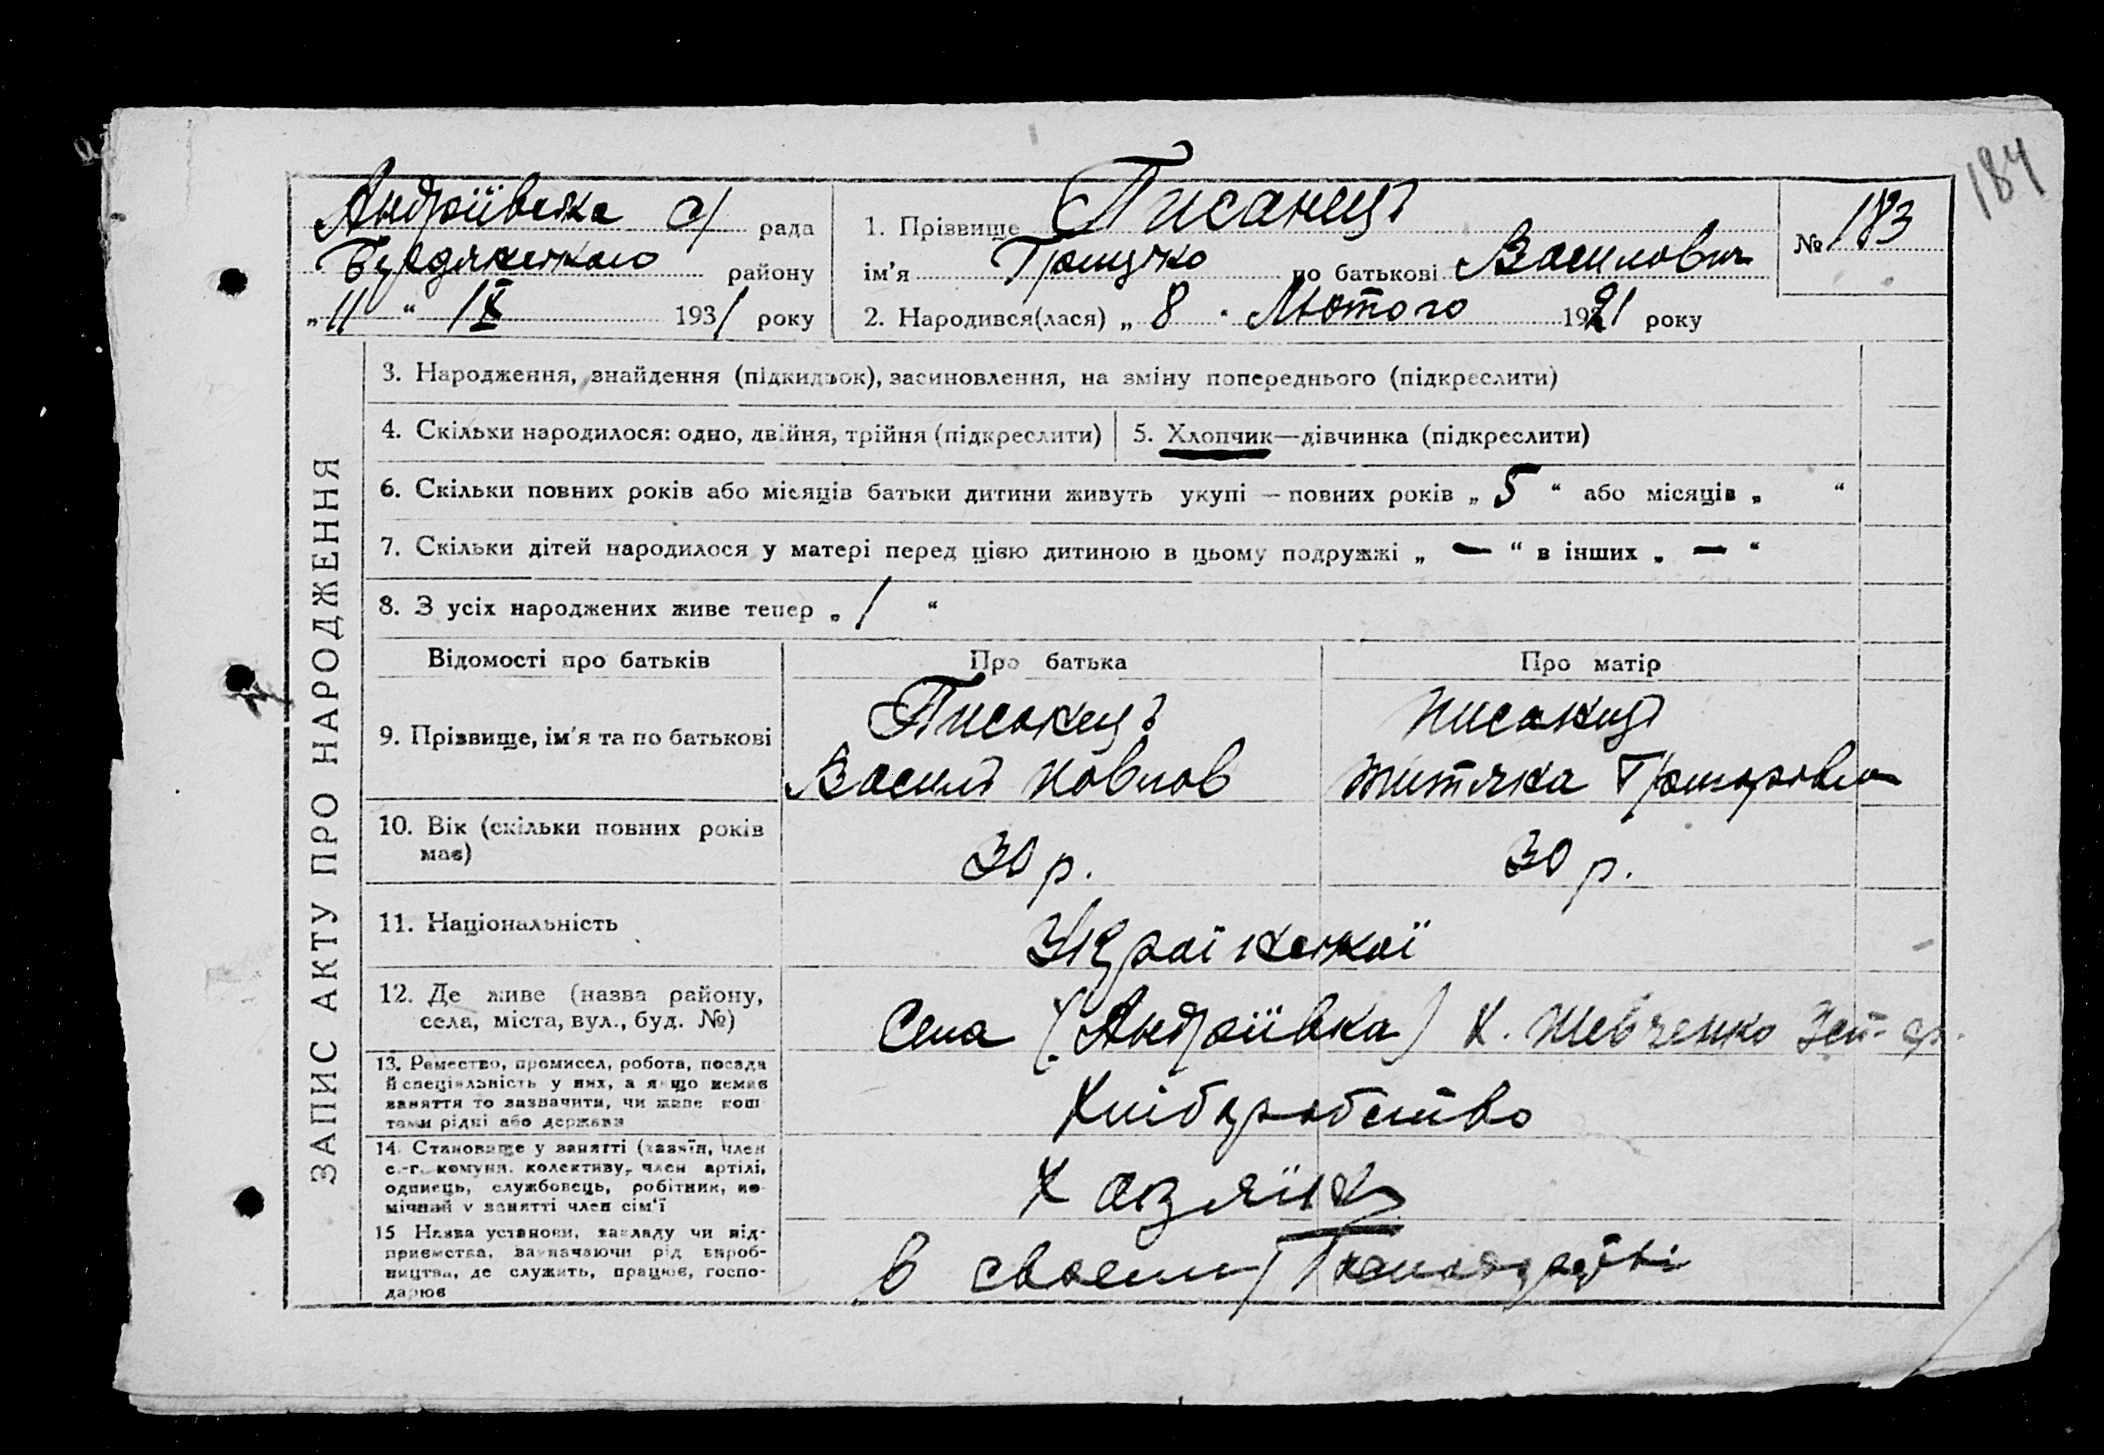 184
Андріївська с/ рада
Бердянського району
„ 11 “ IX 1931 року
1. Прізвище Писанець
ім’я Грицько по батькові Василович
2. Народився(лася) „ 8 “ Лютого 1921 року
№ 183
ЗАПИС АКТУ ПРО НАРОДЖЕННЯ
3. Народження, знайдення (підкидьок), засиновлення, на зміну попереднього (підкреслити)
4. Скільки народилося: одно, двійня, трійня (підкреслити)
5. Хлопчик—дівчинка (підкреслити)
6. Скільки повних років або місяців батьки дитини живуть укупі — повних років „ 5 “ або місяців „ “
7. Скільки дітей народилося у матері перед цією дитиною в цьому подружжі „ — “ в інших „ — “
8. З усіх народжених живе тепер „ 1 “
Відомості про батьків Про батька Про матір
9. Прізвище, ім’я та по батькові
Писанець
Василь Павлов
Писанець
Григоровна
10. Вік (скільки повних років
має)
30 р. 30 р.
11. Національність
Української
12. Де живе (назва району,
села, міста, вул., буд. №)
Села (Андріївка) К. Шевченко
13. Ремество, промисел, робота, посада
й спеціяльність у них, а якщо немає
заняття то зазначити, чи живе кош
тами рідні або держави
Хліборобство
14. Становище у занятті (хазяїн, член
с.-г. комуни, колективу, член артілі,
одинець, службовець, робітник, по-
мічний у занятті член сім’ї
Хазяїн
15 Назва установи, закладу чи під-
приємства, зазначаючи рід вироб-
ництва, де служить, працює, госпо-
дарює
в своєму Господарстві